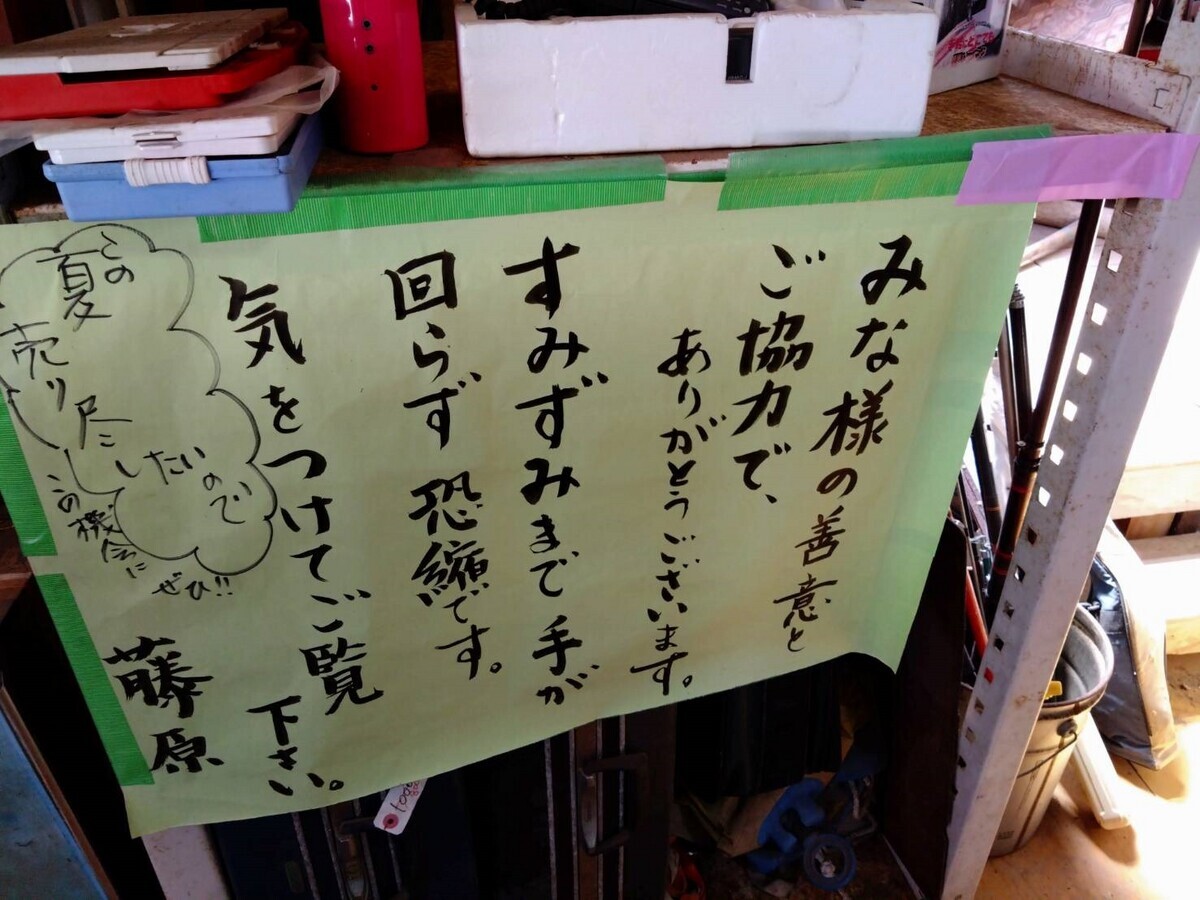 みな様の善意と
ご協力で、
ありがとうございます。
すみずみまで手が
回らず 恐縮です。
気をつけてご覧
下さい。
藤原
この
夏
売り尽
したいので
この機会に
ぜひ!!